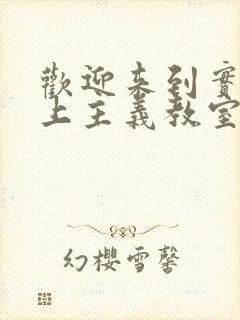 歡迎来到實
上主義教室
幻櫻雪馨